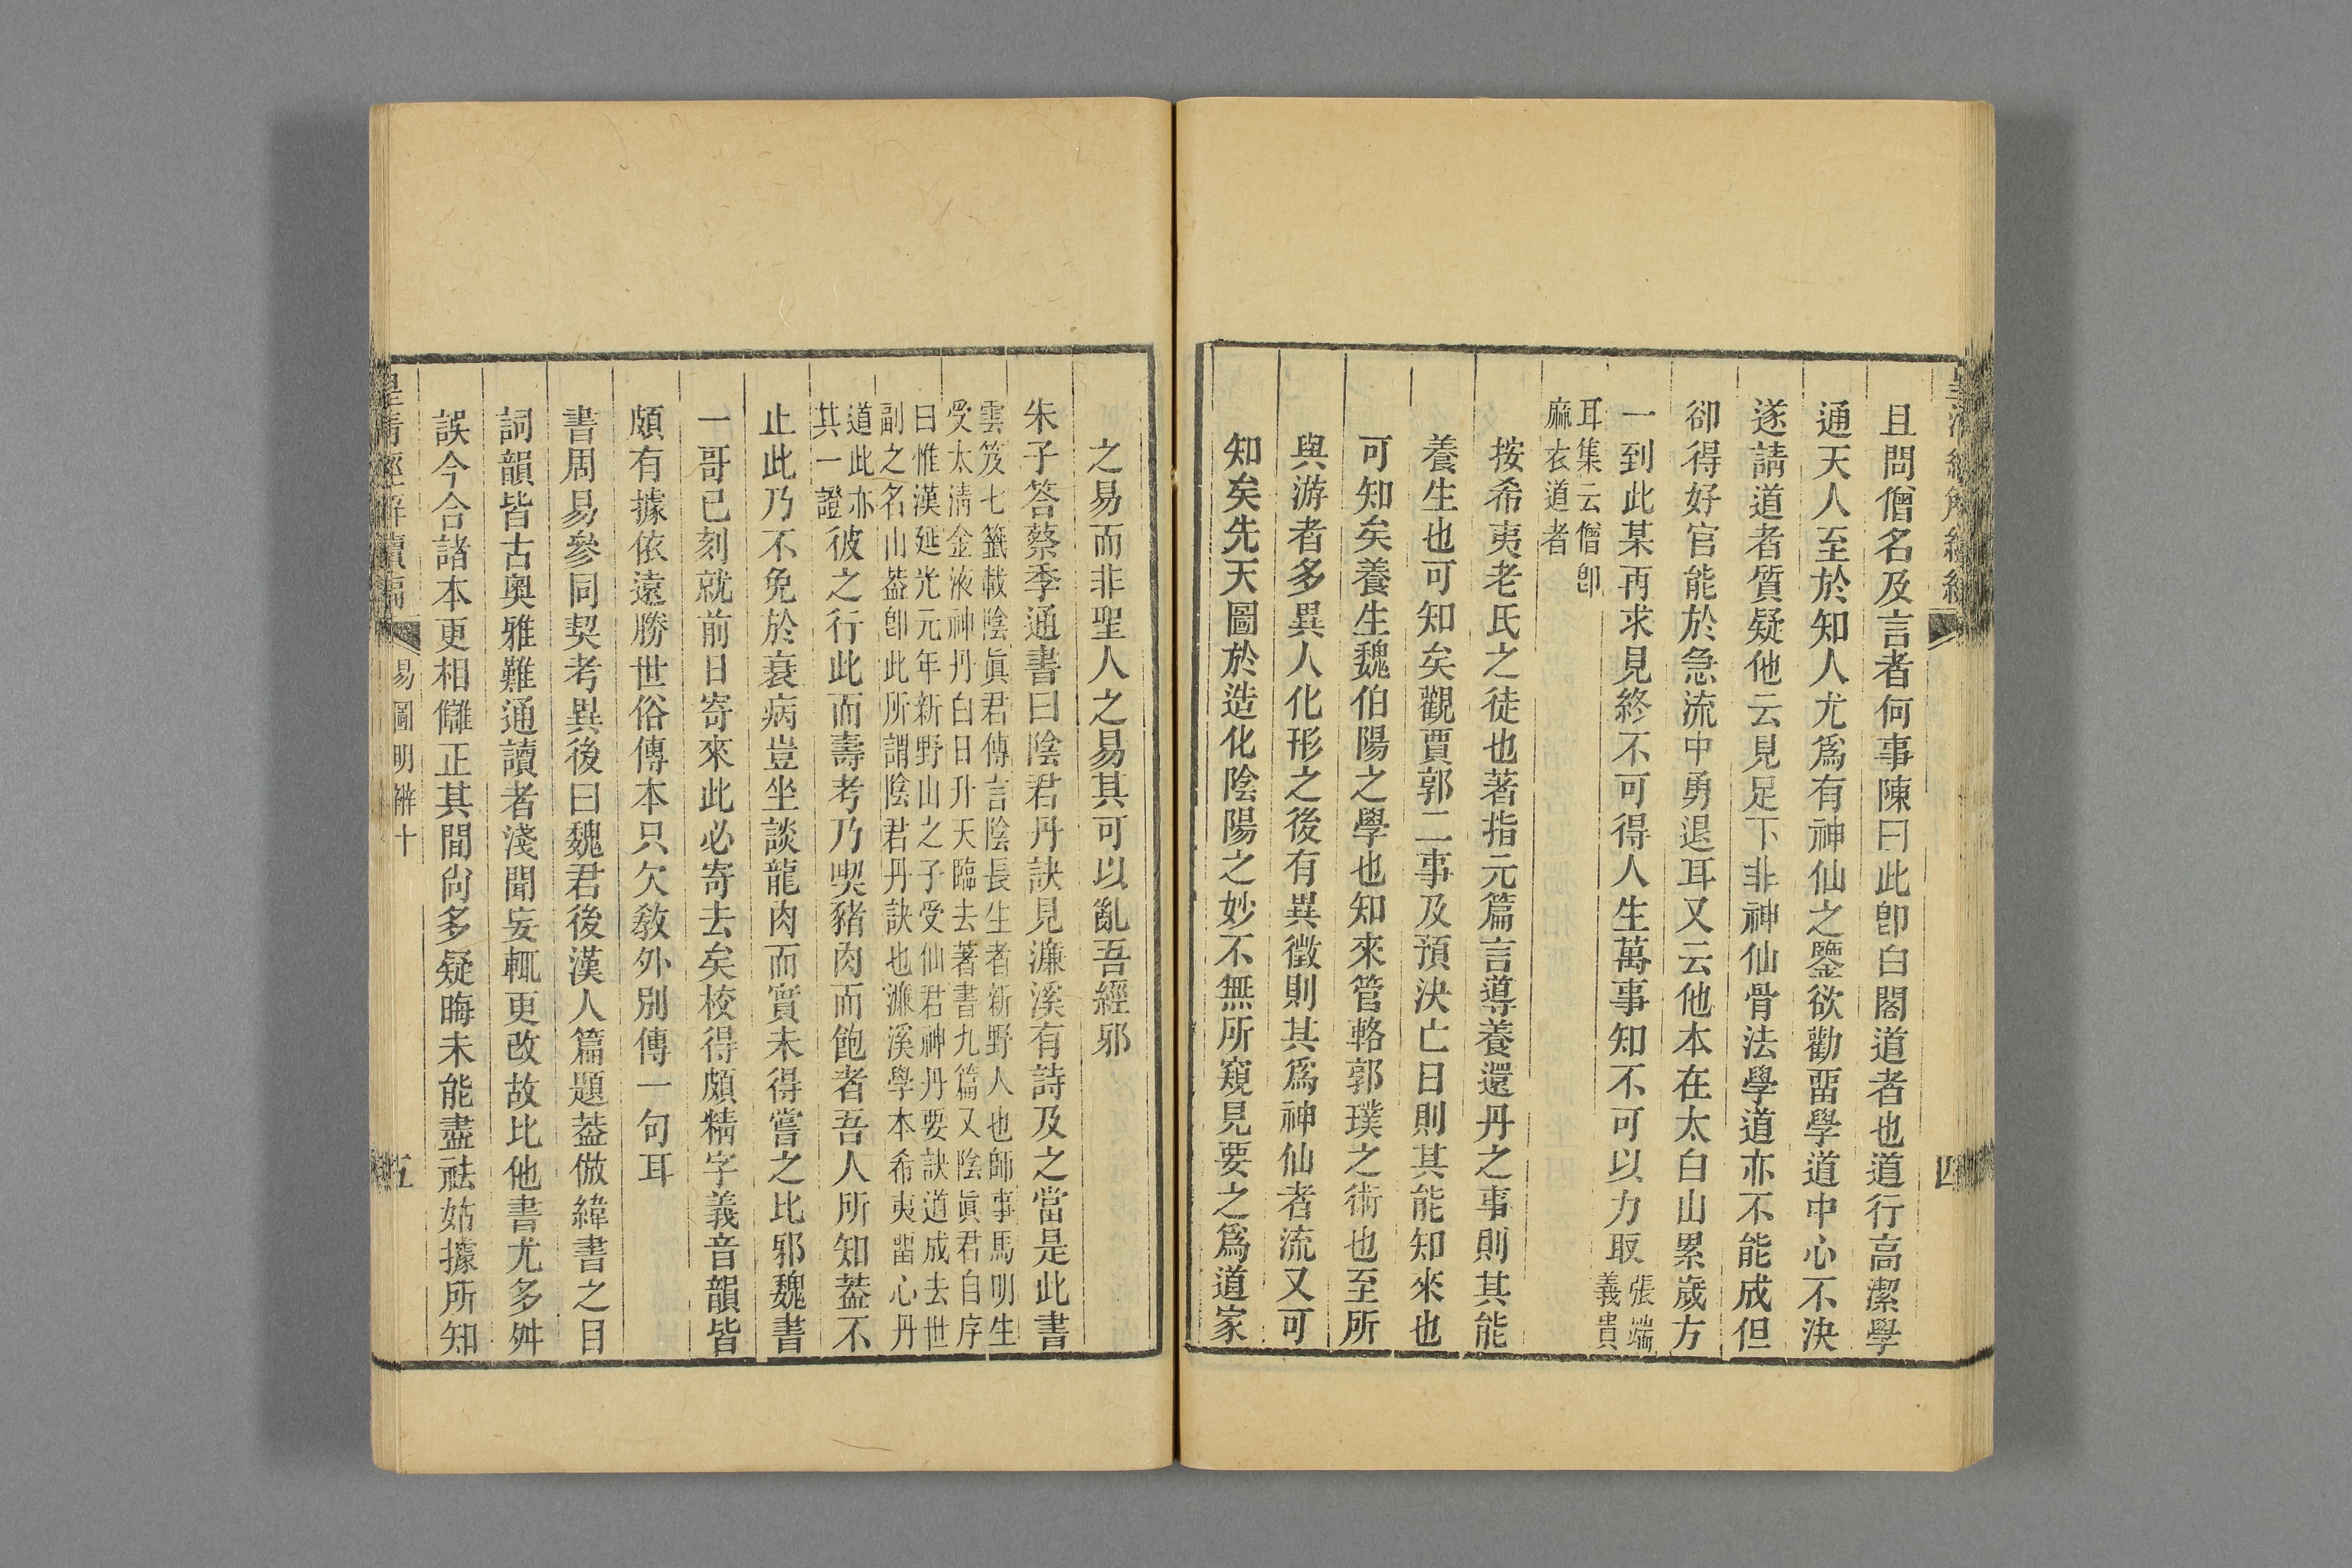 且問僧名及言者何事陳曰此卽白閣道者也道行高潔學
通天人至於知人尤爲有神仙之鑒欲勸畱學道中心不決
遂請道者質疑他云見足下非神仙骨法學道亦不能成但
卻得好官能於急流中勇退耳又云他本在太白山累歲方
一到此某再求見終不可得人生萬事知不可以力取
張端
義貴
耳集云僧卽
麻衣道者
按希夷老氏之徒也著指元篇言導養還丹之事則其能
養生也可知矣觀賈郭二事及預決亡日則其能知來也
可知矣養生魏伯陽之學也知來管輅郭璞之術也至所
與游者多異人化形之後有異徵則其爲神仙者流又可
知矣先天圖於造化陰陽之妙不無所窺見要之爲道家
四
之易而非聖人之易其可以亂吾經邪
朱子答蔡季通書曰陰君丹訣見濂溪有詩及之當是此書
雲笈七籤載陰眞君傳言陰長生者新野人也師事馬明生
受太淸金液神丹白日升天臨去著書九篇又陰眞君自序
曰惟漢延光元年新野山之子受仙君神丹要訣道成去世
副之名山葢卽此所謂陰君丹訣也濂溪學本希夷畱心丹
道此亦
其一證
彼之行此而壽考乃喫豬肉而飽者吾人所知葢不
止此乃不免於衰病豈坐談龍肉而實未得嘗之比邪魏書
一哥已刻就前日寄來此必寄去矣校得頗精字義音韻皆
頗有據依遠勝世俗傳本只欠敎外別傳一句耳
書周易參同契考異後曰魏君後漢人篇題葢倣緯書之目
詞韻皆古奧雅難通讀者淺聞妄輒更改故比他書尤多舛
誤今合諸本更相讎正其間尙多疑晦未能盡祛姑據所知
皇淸經解續編
易圖明辨十
五